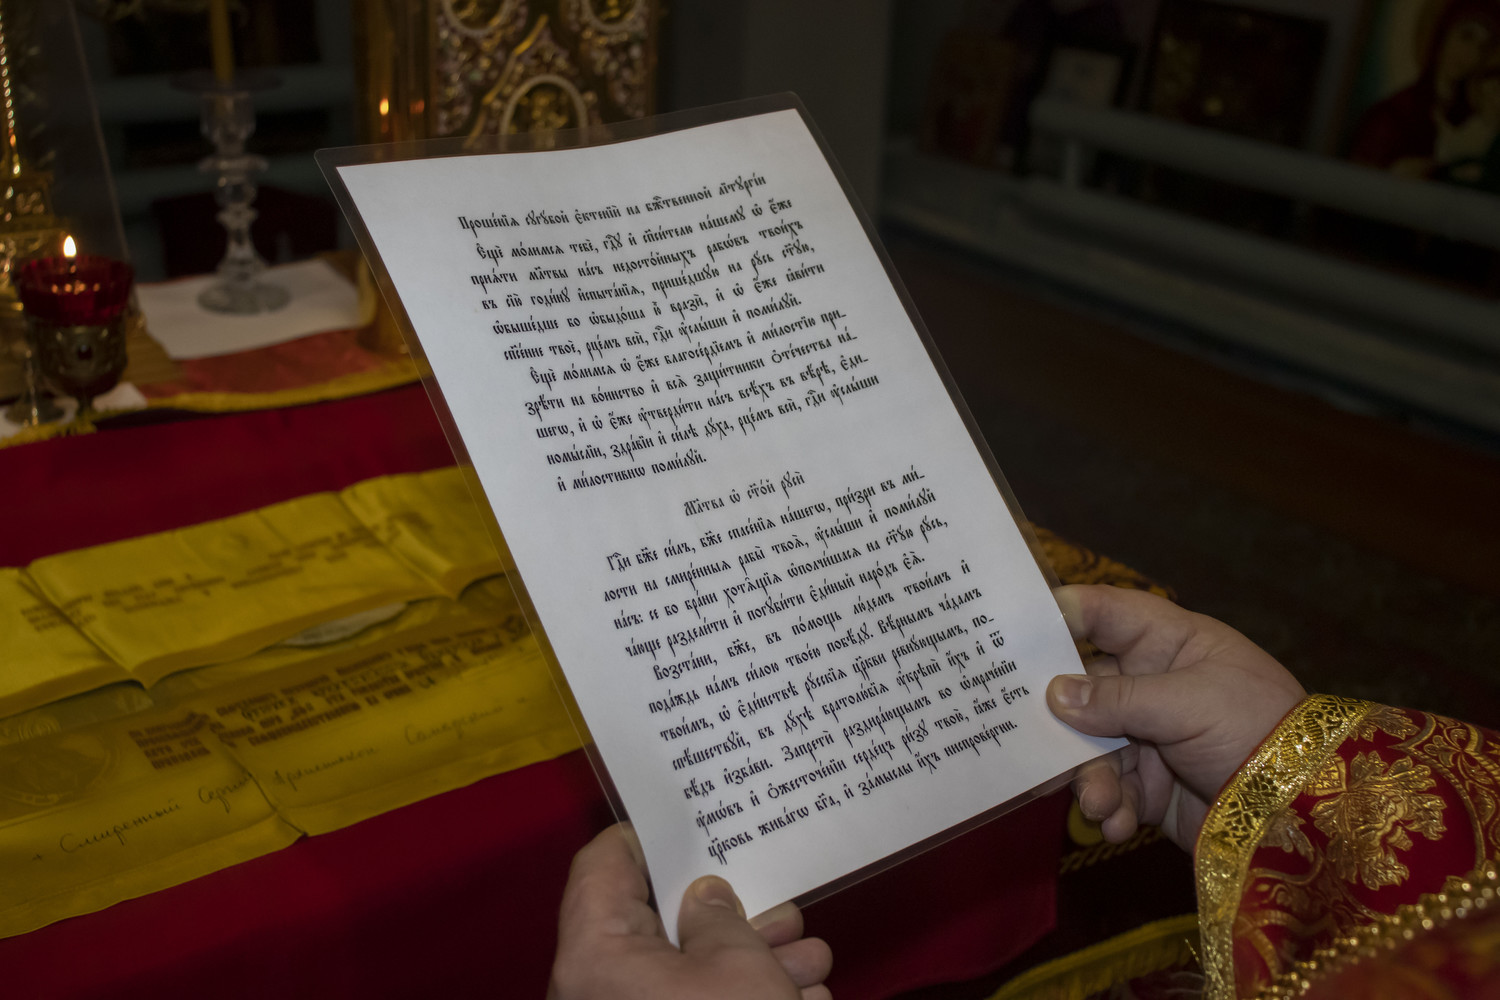 Проше́нїѧ сугу́бой є҆ктенїѝ на бж҃ственной лїтургі́и
Є҆щѐ мо́лимсѧ тебѣ̀, гдⷭ҇у и҆ сп҃си́телю на́шему ѡ҆ є҆́же
прїѧ́ти мл҃твы на́съ недосто́йныхъ рабѡ́въ твои́хъ
въ сїю̀ годи́ну и҆спыта́нїѧ, прише́дшую на ру́сь ст҃у́ю,
ѡ҆быше́дше бо ѡ҆быдо́ша ю҆̀ врази̂, и҆ ѡ҆ є҆́же ꙗ҆ви́ти
сп҃се́нїе твоѐ, рце́мъ всѝ, гдⷭ҇и ᲂу҆слы́ши и҆ поми́луй.
Є҆щѐ мо́лимсѧ ѡ҆ є҆́же благосе́рдїемъ и҆ ми́лостїю при-
зрѣ́ти на во́инство и҆ всѧ̑ защи́тники ѻ҆те́чества на́-
шегѡ, и҆ ѡ҆ є҆́же ᲂу҆тверди́ти на́съ всѣ́хъ въ вѣ́рѣ, є҆ди-
номы́слїи, здра́вїи и҆ си́лѣ дꙋ́ха, рце́мъ всѝ, гдⷭ҇и ᲂу҆слы́ши
и҆ ми́лостивнѡ поми́луй.
Мл҃тва ѡ҆ ст҃о́й русѝ
Гдⷭ҇и бж҃е си́лъ, бж҃е спасе́нїѧ на́шегѡ, при́зри въ ми́-
лости на смирє́нныѧ рабы̑ твоѧ̑, ᲂу҆слы́ши и҆ поми́луй
на́съ: се́ бо бра́ни хотѧ́щїи ѡ҆полчи́шасѧ на ст҃у́ю ру́сь,
ча́юще раздели́ти и҆ погуби́ти є҆ди́ный наро́дъ є҆ѧ̀.
Возста́ни, бж҃е, въ по́мощь лю́демъ твои̑мъ и҆
пода́ждь на́мъ си́лою твое́ю побѣ́ду. Вѣ̑рнымъ ча́дамъ
твои̑мъ, ѡ҆ є҆ди́нствѣ ру́сскїѧ цр҃кви ревну́ющымъ, по-
спѣ́шествуй, въ ду́хѣ братолю́бїѧ ᲂу҆крѣпѝ и҆̀хъ и҆ ѿ
бѣ́дъ и҆зба́ви. Запретѝ раздира́ющымъ во ѡ҆мраче́нїи
ᲂу҆мѡ́въ и҆ ѻ҆жесточе́нїи серде́цъ ри́зу твою̀, ꙗ҆́же є҆́сть
цр҃ковь жива́гѡ бг҃а, и҆ за́мыслы и҆́хъ ниспрове́ргни.
+ Смиренный Сергий
Архиепископ Самарский и